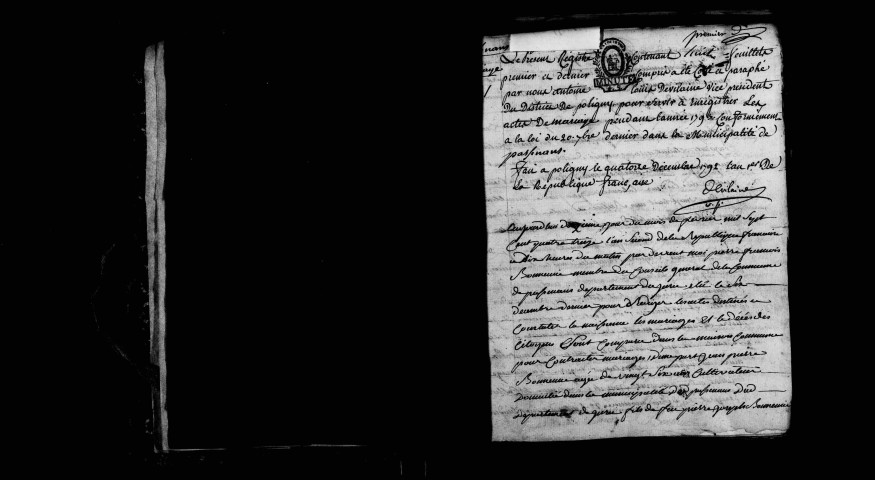 premier
Le present Registre Contenant huit feuillets
premier et dernier Compris a été Coté et paraphé
par nous antoine Louis Devilaine Vice president
Du District De poligny pour servir à Enregistrer Les
actes De mariage pendant L'année 1793 Conformement
a la loi du 20 7bre dernier dans la Municipalité de
passenans.
MINUTE
fait a poligny le quatorze Décembre 1792 L'an 1er De
La Republique française
Devilaine
v. p.
aujourdhui du mois de fevrier mil sept
Cent quatre treize l'an second de la Republique francaise
a dix heures du matin par devant moi pierre francois
Bonnenie membre du Conseil general de la Commune
de passenans departement du jura elû le six
decembre dernier pour Rediger les actes destinés a
Constater la naissance les mariages et le décès des
Citoyens Sont Comparu dans la maison Commune
pour Contracter mariages, d'une part jean pierre
Bonnenie agée de vingt six ans Cultivateur
Domicilié dans la municipalité de passenans Dud
département du jura fils de feu pierre joseph Bonnenie